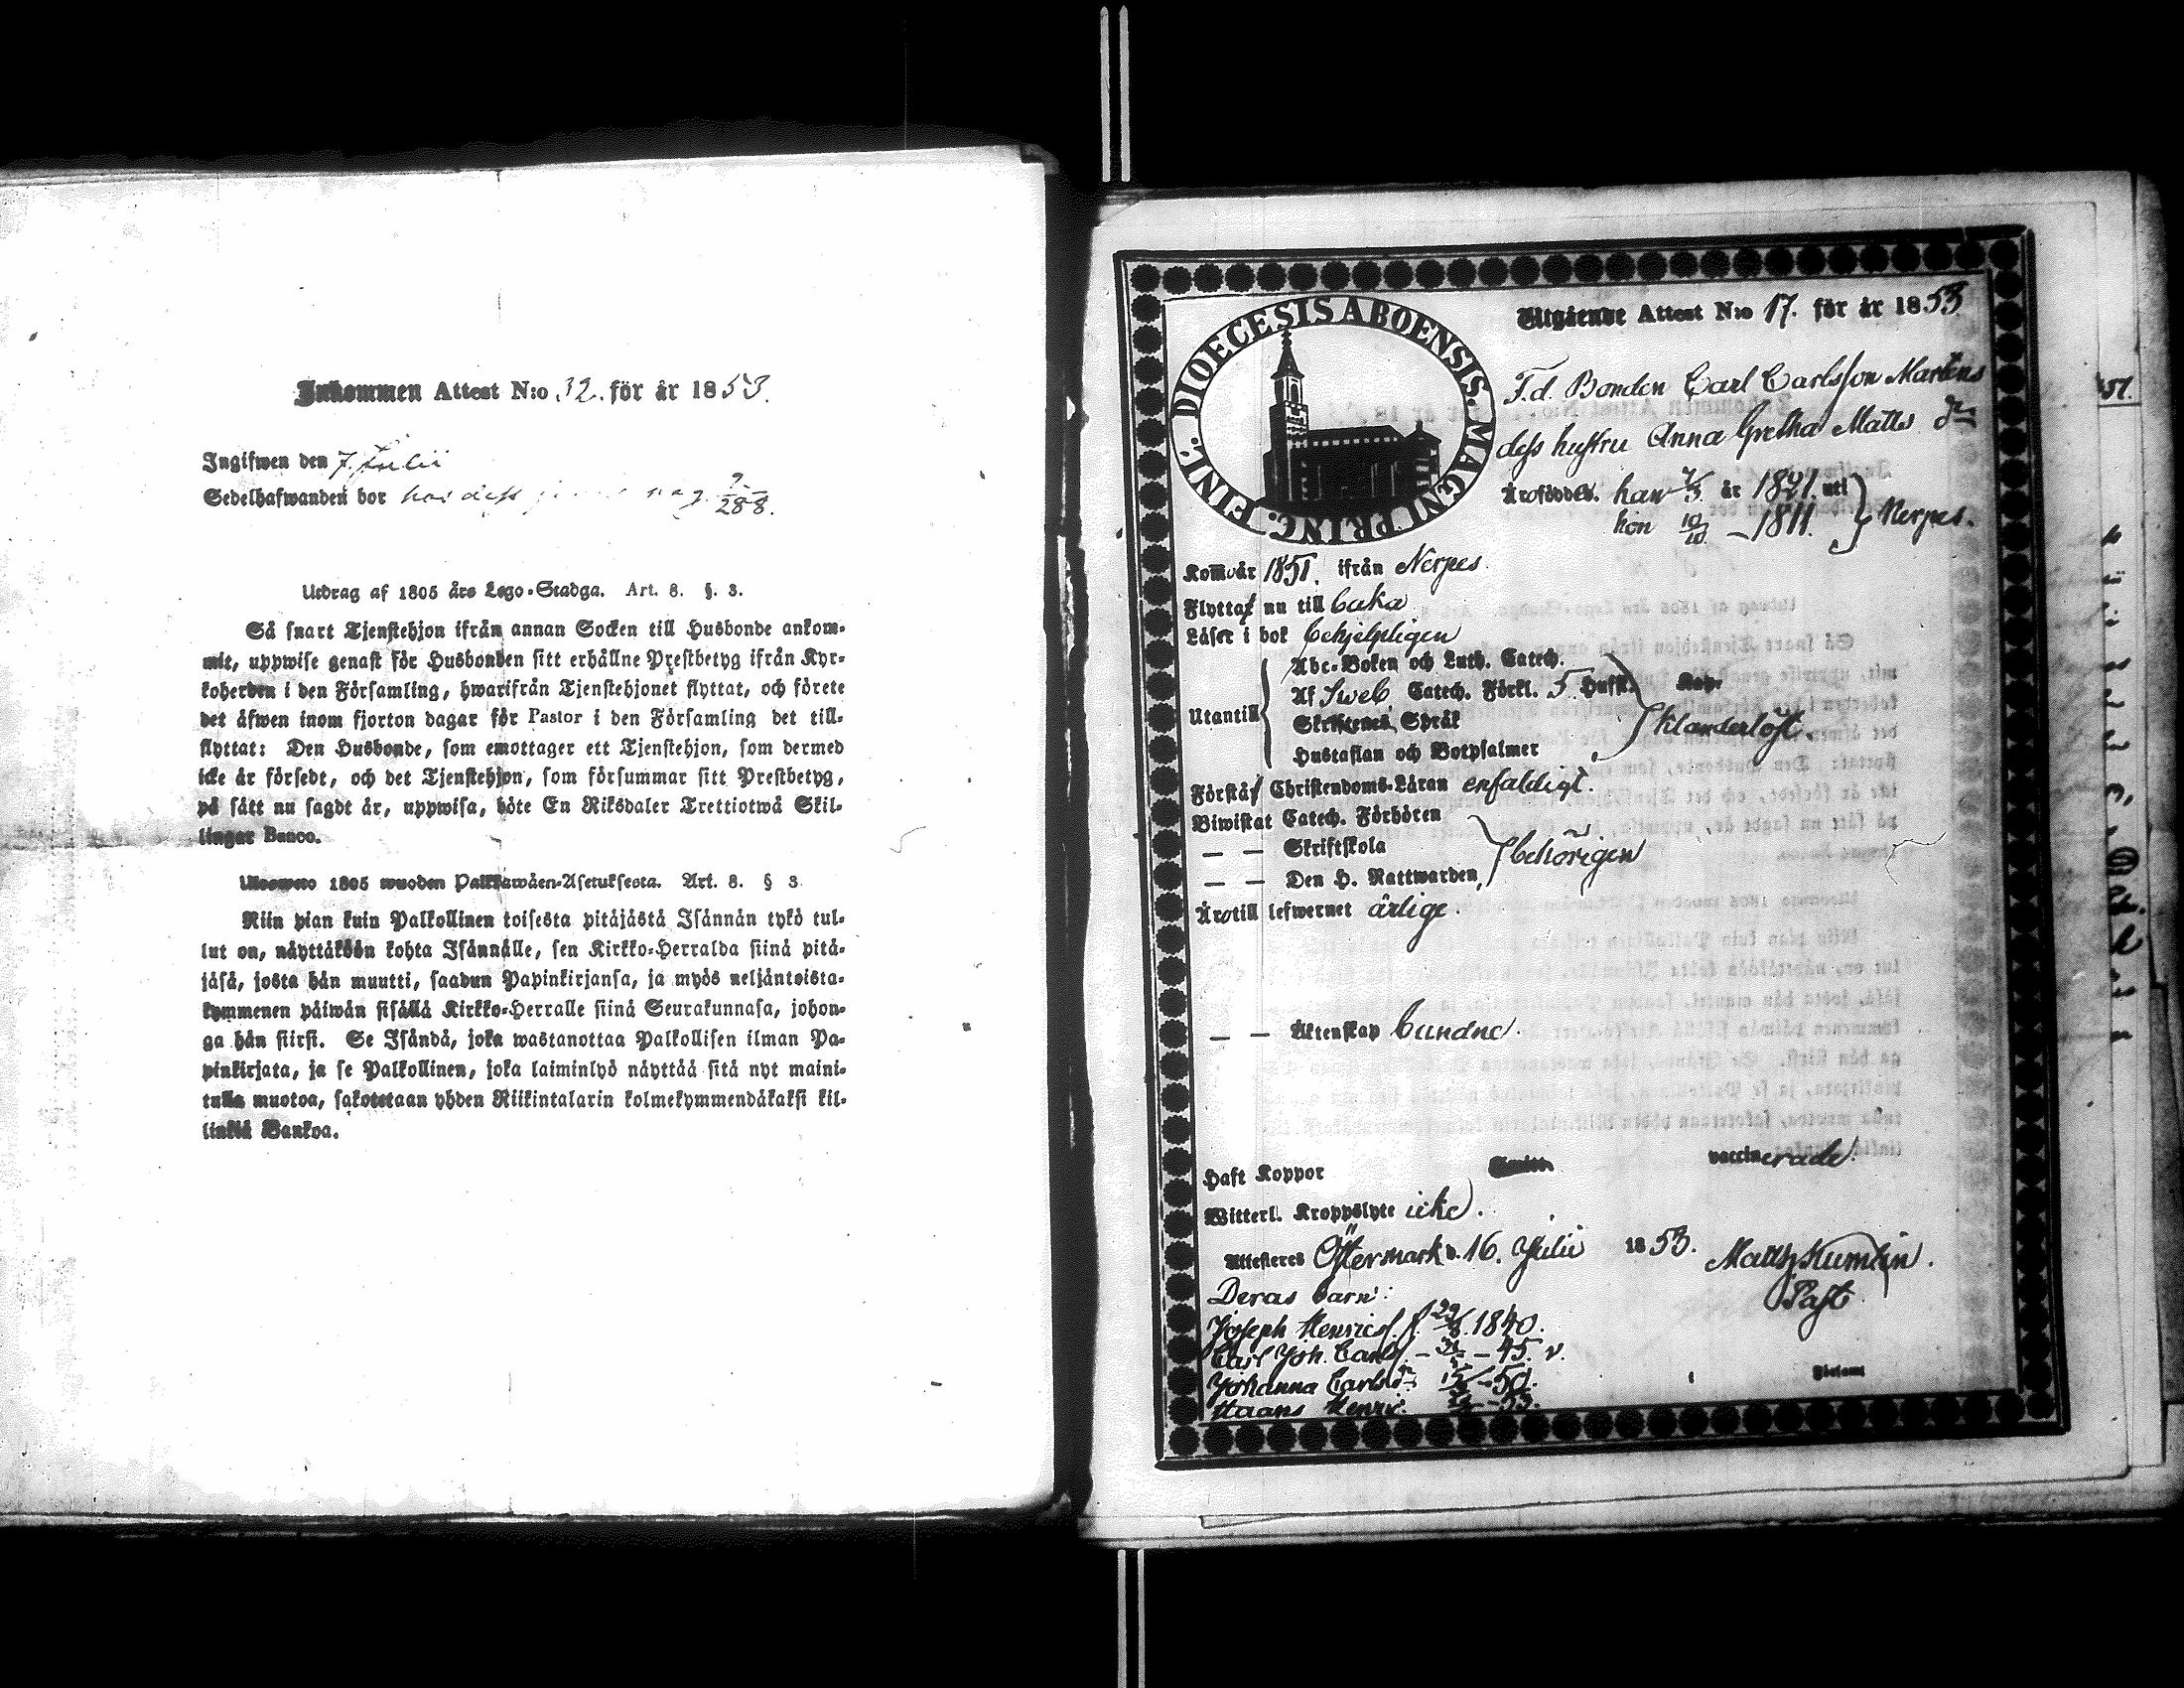 Inkommen Attest N:o 32. för år 1853.
Ingifwen den 7. Julii
Sedelhafwanden bor hos dess pag. 288.
Utdrag af 1805 års Lego-Stadga. Art. 8. §. 3.
Så snart Tjenstehjon ifrån annan Socken till Husbonde ankom-
mit, uppwise genast för Husbonden sitt erhållne Prestbetyg ifrån Kyr-
koherden i den Församling, hwarifrån Tjenstehjonet flyttat, och förete
det åfwen inom fjorton dagar för Pastor i den Församling det till-
flyttat: Den Husbonde, som emottager ett Tjenstehjon, som dermed
icke år försedt, och det Tjenstehjon, som försummar sitt Prestbetyg,
på sått nu sagdt år, uppwisa, böte En Riksdaler Trettiotwå Skil-
lingar Banco.
Ulosweto 1805 wuoden Palkkawåen-Asetuksesta. Art. 8. § 3.
Niin pian kuin Palkollinen toisesta pitåjåstå Isånnån tykö tul-
lut on, nåyttåköön kohta Isånnålle, sen Kirkko-Herralda siinå pitå-
jåså, josta hån muutti, saadun Papinkirjansa, ja myös neljåntoista-
kymmenen påiwån sisållå Kirkko-Herralle siinå Seurakunnasa, johon-
ga hån siirsi. Se Isåndå, joka wastanottaa Palkollisen ilman Pa-
pinkirjata, ja se Palkollinen, joka laiminlyö nåyttåå sitå nyt maini-
tulla muotoa, sakotetaan yhden Riikintalarin kolmekymmendåkaksi kil-
linkiå Bankoa.
DIOECESIS ABOENSIS. MAGNI PRINC. FINL.
Utgående Attest N:o 17. för år 1853
F.d. Bonden Carl Carlsson Martens
dess hustru Anna Gretha Matts dr
Äro födde. han 7/3 år 1821. uti
hon 10/10 – 1811. Nerpes.
Kom år 1851. ifrån Nerpes.
Flytta nu till baka
Låser i bok behjelpligen
Utantill
Abc-Boken och Luth. Catech.
Af Sveb. Catech. Förkl. 5. Hufst.
Skriftenes Språk
Hustaflan och Botpsalmer
klanderlöst.
Förstå Christendoms-Låran enfaldigt.
Biwistat Catech. Förhören
— — Skriftskola
— — Den H. Nattwarden,
behörigen
Äro till lefwernet ärlige.
— — Äktenskap bundne.
Haft Koppor vaccinerade.
Witterl. Kroppslyte icke.
Attesteres Östermark d. 16. Julii 1853. Matth. Kumlin.
Past.
Deras barn:
Joseph Henrics. f. 29/8. 1840.
Carl Joh. Carls. – – 45. v.
Johanna Carlsdr – 50.
Haans Henric. – 53.